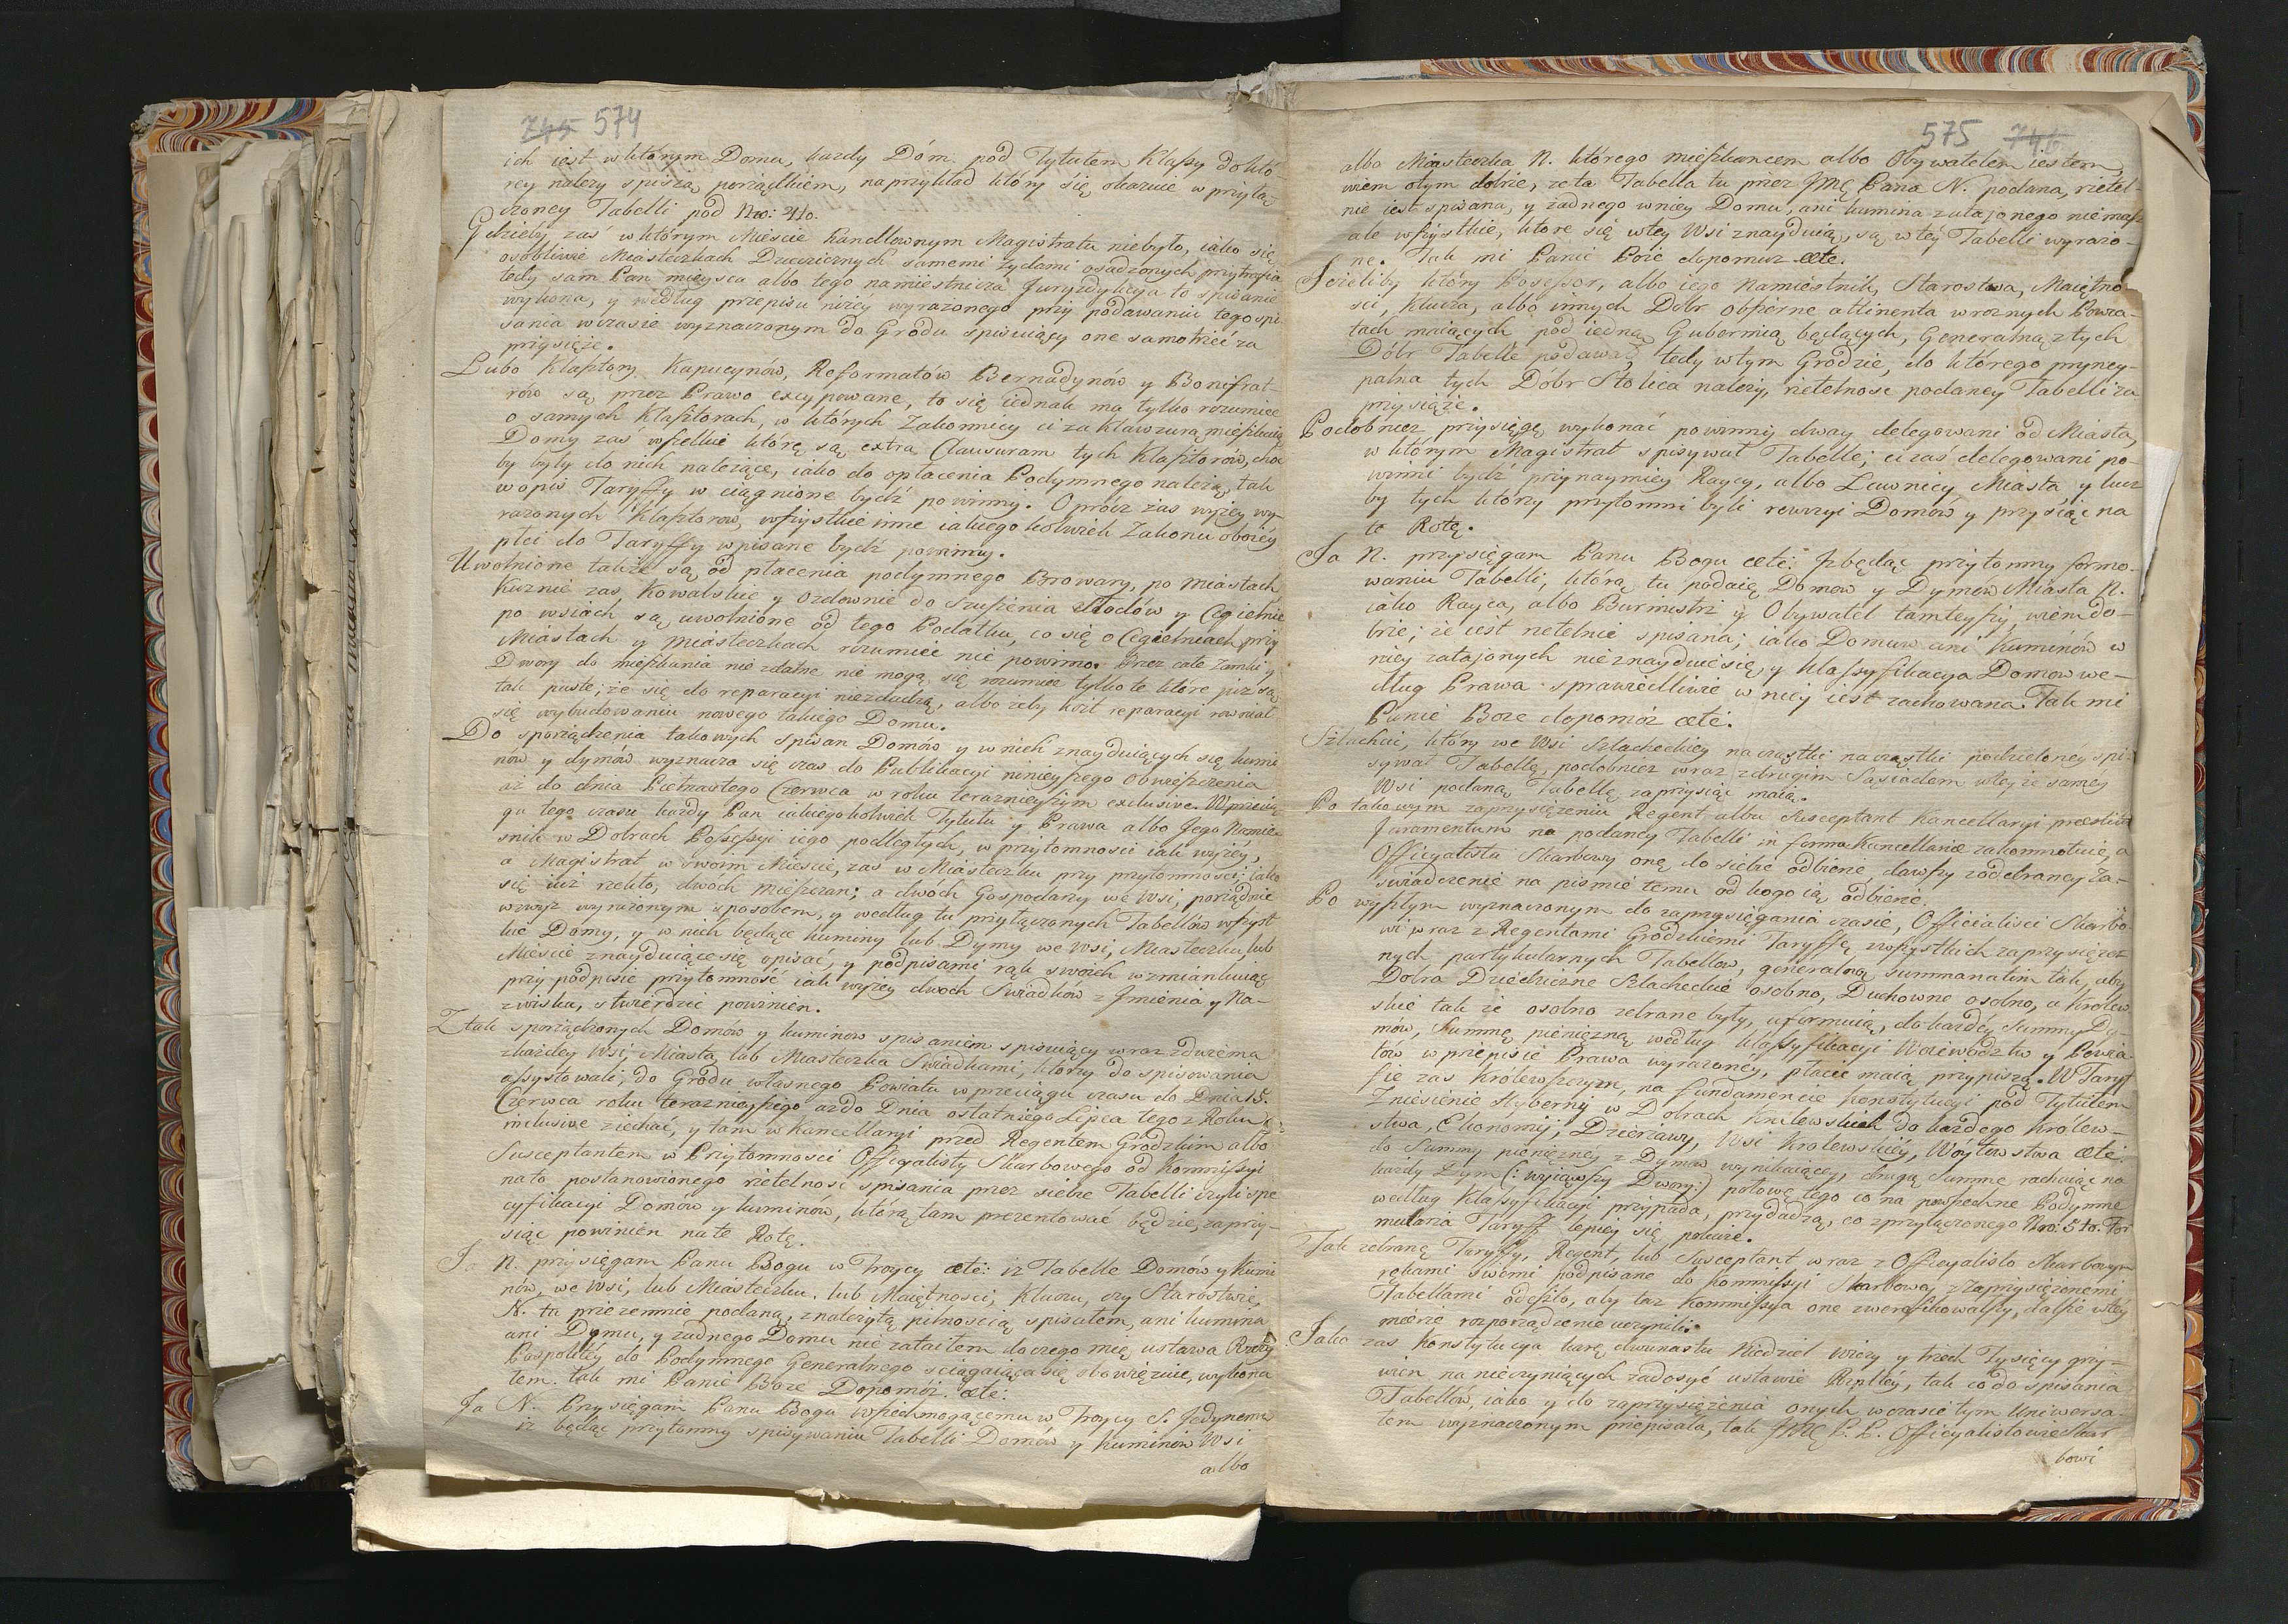 745 574
ich iest w którym Domu, kazdy Dóm pod Tytułem Klaſsy do któ-
rey nalezy spiszą, porządkiem, naprzykład który się okazuie w przyłą-
czoney Tabelli pod Nro: 4to.
Gdzieby zaś w którym Mieście handlownym Magistratu niebyło, iako się
osobliwie Miasteczkach Dziedzicznych samemi Zydami osadzonych przytrafia
tedy sam Pan mieysca albo tego namiestnicza Juryzdykcya to spisanie
wykona, y według przepisu niżey wyrazonego przy podawaniu tego spi-
sania w czasie wyznaczonym do Grodu spisuiący one samotrzeć za
przysięze.
Lubo Klasztory Kapucynów, Reformatów Bernadynów y Bonifrat-
rów są przez Prawo excypowane, to się iednak ma tylko rozumiec
o samych Klasztorach, w których Zakonnicy ci za Klawzurą mieszkaią
Domy zas wszelkie które są extra Clausuram tych Klasztorów, cho
by były do nich nalezące, iako do opłacenia Podymnego nalezą, tak
w opis Taryffy w ciągnione bydź powinny. Oprócz zas wyzey wy-
razonych Klasztorow, wszystkie inne iakiegokolwiek Zakonu oboiey
płci do Taryffy wpisane bydź powinny.
Uwolnione także są od płacenia podymnego Browary, po miastach
Kuznie zas Kowalskie y Ozdownie do Suszenia Słodów y Cegielnie
po wsiach są uwolnione od tego Podatku, co się o Cegielniach przy
Miastach y Miasteczkach rozumiec nie powinno. Przez całe Zamki y
Dwory do mieszkania nie zdatne nie mogą się rozumiec tylko te które iuz są
tak puste, ze się do reparacyi niezdadzą, albo zeby koszt reparacyi rownał
się wybudowaniu nowego takiego Domu.
Do sporządzenia takowych Spisan Domów y w nich znayduiących się kumi
nów y dymów wyznacza się czas do Publikacyi ninieyszego Obwieszczenia
az do dnia Pietnastego Czerwca w roku teraznieyszym exclusive. W przecią
gu tego czasu kazdy Pan iakiegokolwiek Tytułu y Prawa albo Jego Namie
snik w Dobrach Poſseſsyi iego podległych, w przytomnosci iak wyzey,
a Magistrat w swoim Miescie, zas w Miasteczku przy przytomnosci iako
się iuż rzekło, dwóch mieszczan; a dwóch Gospodarzy we Wsi, porządnie
wzwyz wyrazonym sposobem, y według tu przyłączonych Tabellów wszyst
kie Domy, y w nich będące kuminy lub Dymy we Wsi, Miasteczku lub
Miescie znayduiące się opisać, y podpisami rąk swoich wzmiankuiąc
przy podpisie przytomność iak wyzey dwoch Swiadków z Jmienia y Na-
zwiska, stwierdzić powinien.
Z tak sporządzonych Domów y kuminow spisaniem spisuiący wraz z dwiema
z kazdey Wsi, Miasta, lub Miasteczka Swiadkami, którzy do spisowania
aſsystowali, do Grodu własnego Powiatu w przeciągu czasu do Dnia 15.
Czerwca roku teraznieyszego, az do Dnia ostatniego Lipca tegoz Roku
inclusive ziechać, y tam w Kancellaryi przed Regentem Grodzkim albo
Susceptantem w Przytomnosci Officyalisty Skarbowego od Kommiſsyi
na to postanowionego rzetelnosc spisania przez siebie Tabelli czyli spe
cyfikacyi Domów y kuminów, którą tam prezentować będzie, zaprzy-
siąc powinien na te Rotę.
Ja N. przysięgam Panu Bogu w Troycy ætc: iz Tabelle Domów y Kumi
nów, we Wsi, lub Miasteczku, lub Maiętnosci, Kluczu, czy Starostwie,
N. tu przezemnie podaną, z nalezytą pilnoscią spisałem, ani kumina
ani Dymu, y zadnego Domu nie zataiłem do czego mię ustawa Rzeczy
Pospolitey do Podymnego Generalnego sciągaiąca się obowięzuie, wykona
łem. tak mi Panie Boze Dopomóż. ætc:
Ja N. Przysięgam Panu Bogu Wszechmogącemu w Troycy S. Jedynemu
iz będąc przytomny spisywaniu Tabelli Domów y kuminów Wsi
albo
575 746
albo Miasteczka N. którego mieszkancem albo Obywatelem iestem,
wiem o tym dobrze, ze ta Tabella tu przez JMć Pana N. podana, rzetel-
nie iest spisana, y żadnego w niey Domu, ani kumina zatajonego niemasz
ale wszystkie, które się w tey Wsi znayduią, są w tey Tabelli wyrazo-
ne. Tak mi Panie Boże dopomuz ætc.
Jeżeliby który Poseſsor, albo iego Namiestnik, Starostwa, Maiętno
sci, Klucza, albo innych Dóbr obszerne attinenta w roznych Powia-
tach maiących pod iedną Gubernią będących, Generalną z tych
Dóbr Tabelle podawał, tedy w tym Grodzie, do którego pryncy-
palna tych Dóbr Stolica nalezy, rzetelnosc podaney Tabelli za
przysiąże.
Podobniez przysięgę wykonać powinny dway delegowani od Miasta,
w którym Magistrat spisywał Tabelle; ci zaś delegowani po-
winni bydź przynaymniey Raycy, albo Ławnicy Miasta, y lecz
by tych którzy przytomni byli rewizyi Domów y przysiąc na
te Rotę.
Ja N. przysięgam Panu Bogu ætc: Jz będąc przytomny formo-
waniu Tabelli, którą tu podaię Domow y Dymów Miasta N.
iako Rayca, albo Burmistrz y Obywatel tamteyszy, wiem do-
brze; że iest rzetelnie spisana; iako Domuw ani Kuminów w
niey zatajonych nieznayduie się, y klaſsyfikacya Domow we-
dług Prawa sprawiedliwie w niey iest zachowana. Tak mi
Panie Boze dopomóz ætc.
Szlachcic, który we Wsi Szlacheckiey na cząstki na cząstki podzieloney spi-
sywał Tabellę, podobniez wraz z drugim Sąsiadem w tey że samey
Wsi podaną Tabellę zaprzysiąc maią.
Po takowym zaprzysiężeniu Regent albo Susceptant Kancellaryi præstitū
Juramentum na podaney Tabelli in forma Kancellariæ zakonnotuie, a
Officyalista Skarbowy onę do siebie odbierze, dawszy z odebraney za-
swiadczenie na pismie temu od kogo ią odbierze.
Po wyszłym wyznaczonym do zaprzysięgania czasie, Officialisci Skarbo-
wi wraz z Regentami Grodzkiemi Taryffę z wszystkich zaprzysięzo-
nych partykularnych Tabellow, generalną summariatim tak, aby
Dobra Dziedziczne Szlacheckie osobno, Duchowne osobno, a Krolew
skie tak że osobno zebrane były, uformuią, do kazdey Summy Dy-
mów, Summę pienięzną według klaſsyfikacyi Woiewództw y Powia-
tów w przepisie Prawa wyrazoney, płacić maią przypiszą. W Taryf
fie zas Królewszczyzn, na fundamencie Konstytucyi pod Tytułem
Zniesienie Hyberny w Dobrach Królewskich do kazdego Królew-
stwa, Ekonomij, Dzierżawy, Wsi Krolewskiey, Wóytowstwa ætc:
do Summy pienięzney z Dymow wynikaiącey, drugą Summe rachuiąc na
kazdy Dym (: wyiąwszy Dwory:) połowę tego co na powszechne Podymne
według Klaſsyfikacyi przypada, przydadzą, co z przyłączonego Nro: 5to. For
mularza Taryff lepiey się pokaze.
Tak zebraną Taryffy, Regent, lub Susceptant wraz z Officyalistą Skarbowym
rękami swemi podpisane do Kommiſsyi Skarbowey z zaprzysiężonemi
Tabellami odeszlo, aby taz Kommiſsya one zwerefikowałszy, dalsze w tey
mierze rozporządzenie uczyniła.
Jako zas Konstytucya karę dwunastu Niedziel Wiezy y trzech Tysięcy grzy-
wien na nieczyniących zadosyć ustawie Rzpltey, tak co do spisania
Tabellów, iako y do zaprzysiężenia onych w czasie tym Uniwersa-
łem wyznaczonym przepisała, tak JPWć P. P. Officyalistowie Skar
bowi